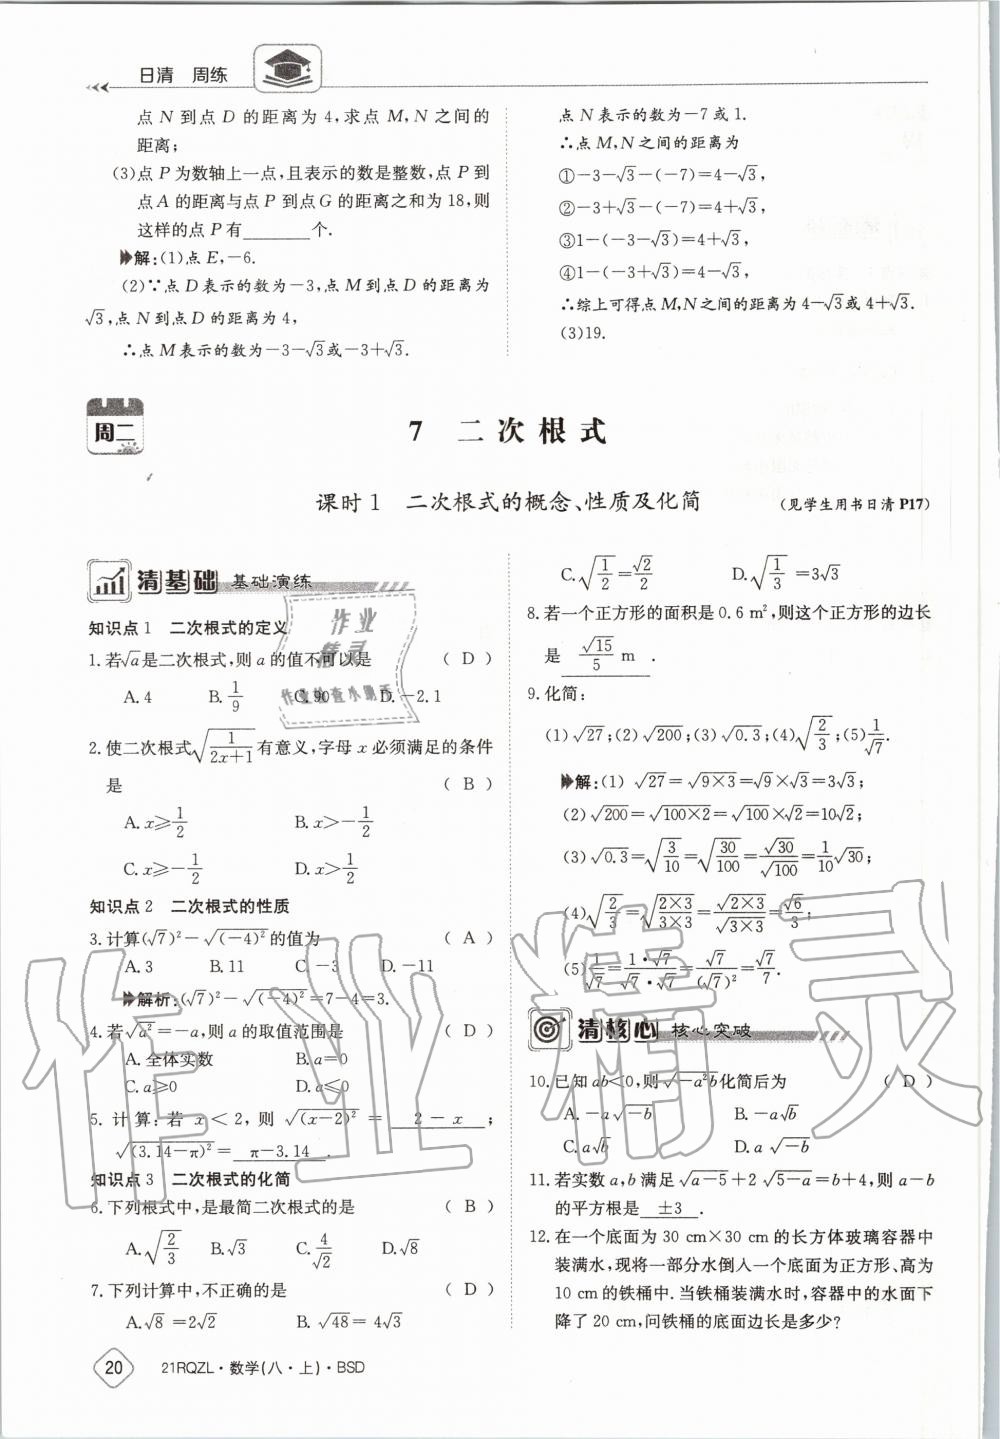 日清 周练
点 N 到点 D 的距离为 4,求点 M,N 之间的
距离;
(3)点 P 为数轴上一点,且表示的数是整数,点 P 到
点 A 的距离与点 P 到点 G 的距离之和为 18,则
这样的点 P 有______个.
解:(1)点 E,-6.
(2)∵点 D 表示的数为-3,点 M 到点 D 的距离为
√3,点 N 到点 D 的距离为 4,
∴点 M 表示的数为-3-√3或-3+√3.
点 N 表示的数为-7 或 1.
∴点 M,N 之间的距离为
①-3-√3-(-7)=4-√3,
②-3+√3-(-7)=4+√3,
③1-(-3-√3)=4+√3,
④1-(-3+√3)=4-√3,
∴综上可得点 M,N 之间的距离为 4-√3或 4+√3.
(3)19.
周二
7 二次根式
课时1 二次根式的概念、性质及化简 (见学生用书日清 P17)
清基础 基础演练
知识点1 二次根式的定义
1.若√a是二次根式,则 a 的值不可以是 ( D )
A. 4 B. 1/9 C. 90 D. -2.1
2.使二次根式√(1/(2x+1))有意义,字母 x 必须满足的条件
是 ( B )
A. x≥1/2 B. x>-1/2
C. x≥-1/2 D. x>1/2
知识点2 二次根式的性质
3.计算(√7)²-√((-4)²)的值为 ( A )
A. 3 B. 11 C. -3 D. -11
解析:(√7)²-√((-4)²)=7-4=3.
4.若√(a²)=-a,则 a 的取值范围是 ( D )
A. 全体实数 B. a=0
C. a≥0 D. a≤0
5.计算:若 x<2,则 √((x-2)²) = 2-x ;
√((3.14-π)²)= π-3.14 .
知识点3 二次根式的化简
6.下列根式中,是最简二次根式的是 ( B )
A.√(2/3) B.√3 C.4/√2 D.√8
7.下列计算中,不正确的是 ( D )
A.√8=2√2 B.√48=4√3
C.√(1/2)=√2/2 D.√(1/3)=3√3
8.若一个正方形的面积是 0.6 m²,则这个正方形的边长
是 √15/5 m .
9.化简:
(1)√27;(2)√200;(3)√0.3;(4)√(2/3);(5)1/√7.
解:(1)√27=√(9×3)=√9×√3=3√3;
(2)√200=√(100×2)=√100×√2=10√2;
(3)√0.3=√(3/10)=√(30/100)=√30/√100=1/10√30;
(4)√(2/3)=√((2×3)/(3×3))=√(2×3)/√(3×3)=√6/3;
(5)1/√7=(1·√7)/(√7·√7)=√7/(√7)²=√7/7.
清核心 核心突破
10.已知 ab<0,则√(-a²b)化简后为 ( D )
A. -a√(-b) B. -a√b
C. a√b D. a√(-b)
11.若实数 a,b 满足√(a-5)+2√(5-a)=b+4,则 a-b
的平方根是 ±3 .
12.在一个底面为 30 cm×30 cm 的长方体玻璃容器中
装满水,现将一部分水倒入一个底面为正方形、高为
10 cm 的铁桶中.当铁桶装满水时,容器中的水面下
降了 20 cm,问铁桶的底面边长是多少?
20 21RQZL·数学(八·上)·BSD
作业
精灵
作业检查小助手
作业精灵